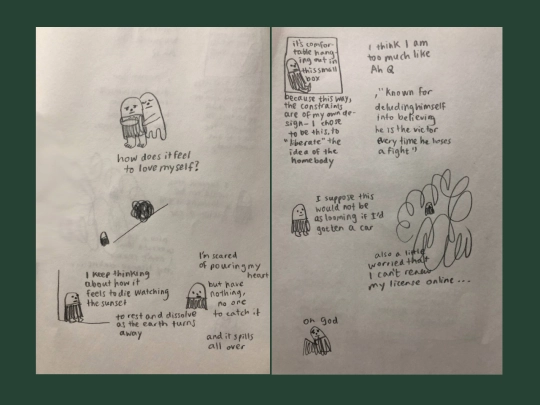 how does it feel
to love myself?
I keep thinking
about how it
feels to die watching
the sunset
to rest and dissolve
as the earth turns
away
I'm scared
of pouring my
heart
but have
nothing,
no one
to catch it
and it spills
all over
it's comfor-
table hang-
ing out in
this small
box
because this way,
the constraints
are of my own de-
sign - I chose
to be this, to
"liberate" the
idea of the
homebody
I think I am
too much like
Ah Q
, "known for
deluding himself
into believing
he is the victor
every time he loses
a fight"
I suppose this
would not be
as looming if I'd
gotten a car
also a little
worried that
I can't renew
my license online ...
oh god